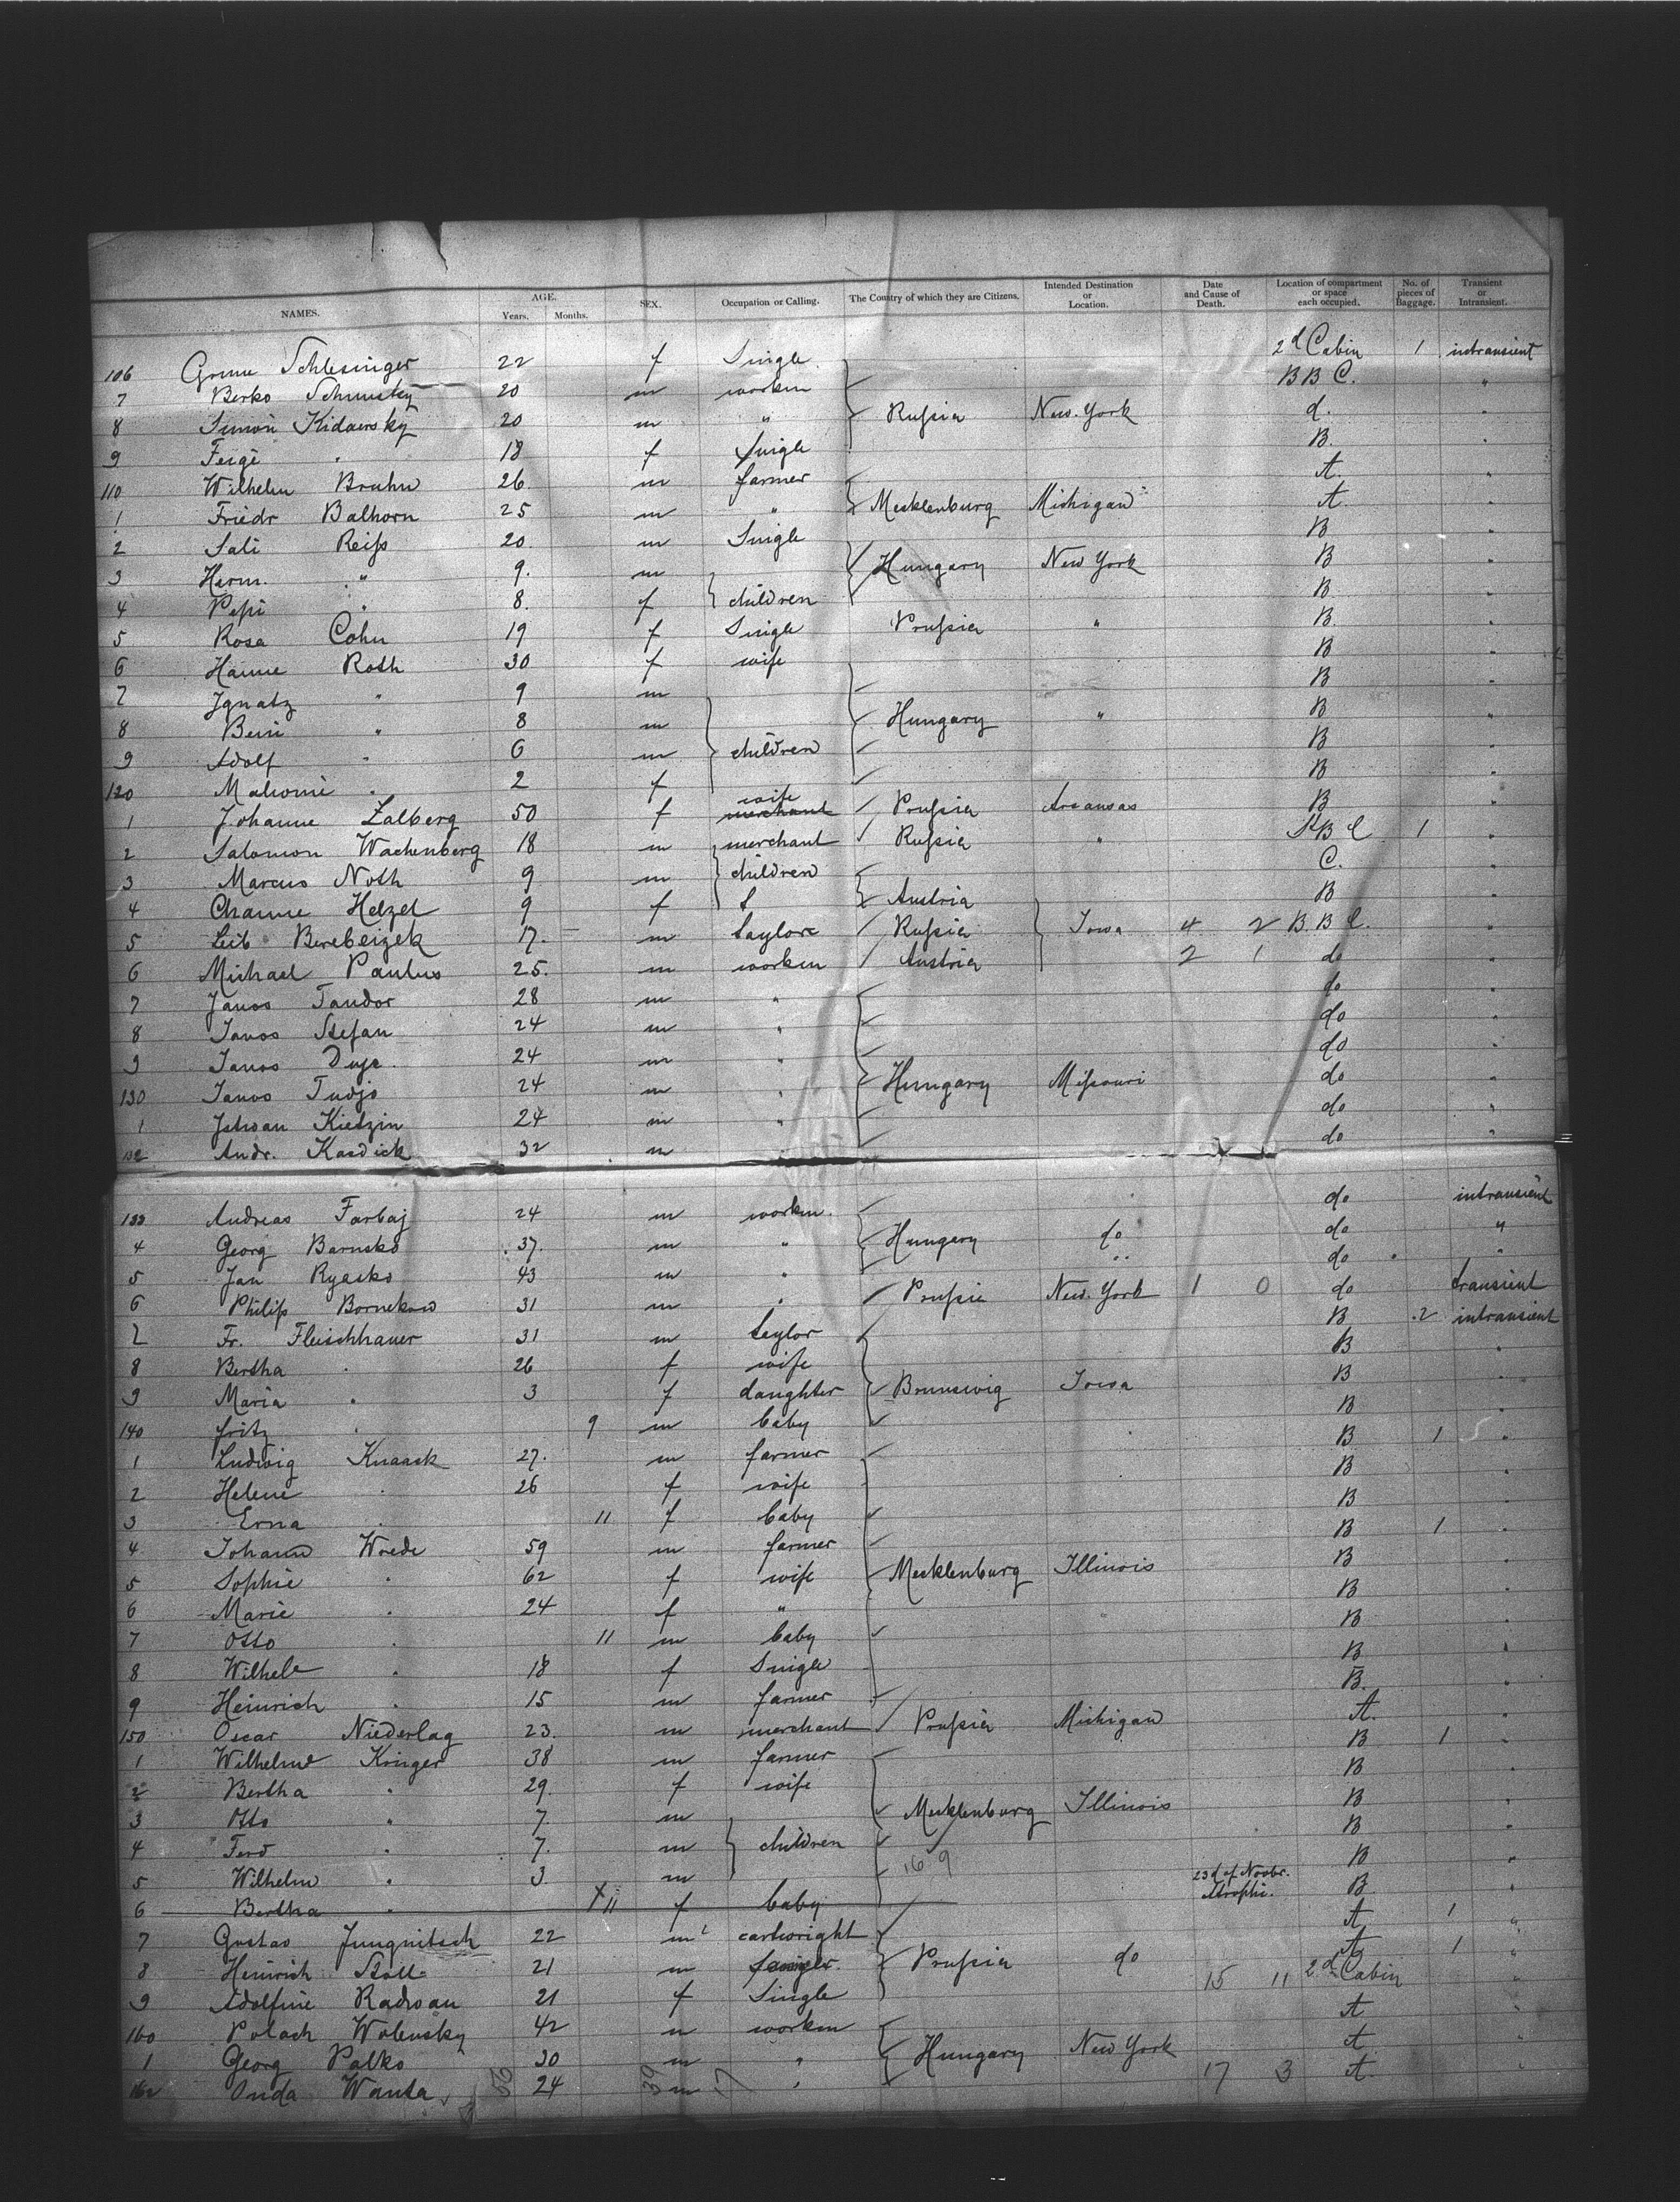 NAMES. AGE. Years. Months. SEX. Occupation or Calling. The Country of which they are Citizens. Intended Destination or Location. Date and Cause of Death. Location of compartment or space each occupied. No. of pieces of Baggage. Transient or Intransient.
106 Schlesinger 22 f Single 2d Cabin 1 intransient
7 Berko 20 m workm B B C. "
8 Simon Kidaersky 20 m " Rußia New York d. "
9 Feige " 18 f Single B. "
110 Wilhelm Bruhn 26. m farmer A. "
1 Friedr Balhorn 25 m " Mecklenburg Michigan A "
2 Sali Reiß 20. m Single B "
3 Herm. " 9. m Hungary New York B "
4 Pepi " 8. f children B "
5 Rosa Cohn 19 f Single Prußia " B "
6 Hanne Roth 30 f wife B "
7 Ignatz " 9 m B "
8 Beni " 8 m Hungary " B "
9 Adolf " 6 m children B "
120 " 2 f B "
1 Johanne Zalberg 50 f wife merchant Prußia Arcansas B "
2 Salomon Wachenberg 18 m merchant Rußia " B C 1 "
3 Marcus Noth 9 m children C. "
4 Channe Helzel 9 f Austria B "
5 Leib Berebeizek 17. m taylor Rußia Iowa 4 2 B. B C. "
6 Michael Paulus 25. m workm Austria 2 1 do "
7 Janos Tandor 28 m " do "
8 Janos Stefan 24 m " do "
9 Janos 24 m " do "
130 Janos Tudjo 24 m " Hungary Mißouri do "
1 Istvan Kietzin 24 m " do "
132 Andr. Kasdick 32 m " do "
133 Andreas Farbaj 24 m workm. do intransient
4 Georg Barnsko 37. m " Hungary do do "
5 Jan Ryasko 43 m " " do "
6 Philip Bornekow 31 m " Prußie New. York 1 0 do transient
7 Fr. Fleischhauer 31 m taylor B 2 intransient
8 Bertha " 26 f wife B "
9 Maria " 3 f daughter Brunswig Iowa B "
140 Fritz " 9 m baby B "
1 Ludwig Knaack 27. m farmer B 1 "
2 Helene " 26 f wife B "
3 Erna " 11 f baby B "
4 Johann Wrede 59 m farmer B 1 "
5 Sophie " 62 f wife Mecklenburg Illinois B "
6 Marie " 24 f " B "
7 Otto " 11 m baby B "
8 Wilhele " 18 f Single B "
9 Heinrich " 15 m farmer B. "
150 Oscar Niederlag 23. m merchant Prußia Michigan A. "
1 Wilhelm Krüger 38 m farmer B 1 "
2 Bertha " 29. f wife B "
3 Otto " 7. m Mecklenburg Illinois B "
4 Ferd " 7. m children B "
5 Wilhelm " 3 m 16 9 B "
6 Bertha " 11 f baby 23d of Novbr. Atrophi. B "
7 Gustav Jungnitsch 22 m cartwright A 1 "
8 Heinrich Stoll 21 m Prußia do A 1 "
9 Adolfine Radwan 21 f Single 15 11 2d Cabin "
160 Polach Wolensky 42 m workm A "
1 Georg Palko 30 m " Hungary New York A "
162 Onda Wanta 56 24 39 m 17 " 17 3 A. "